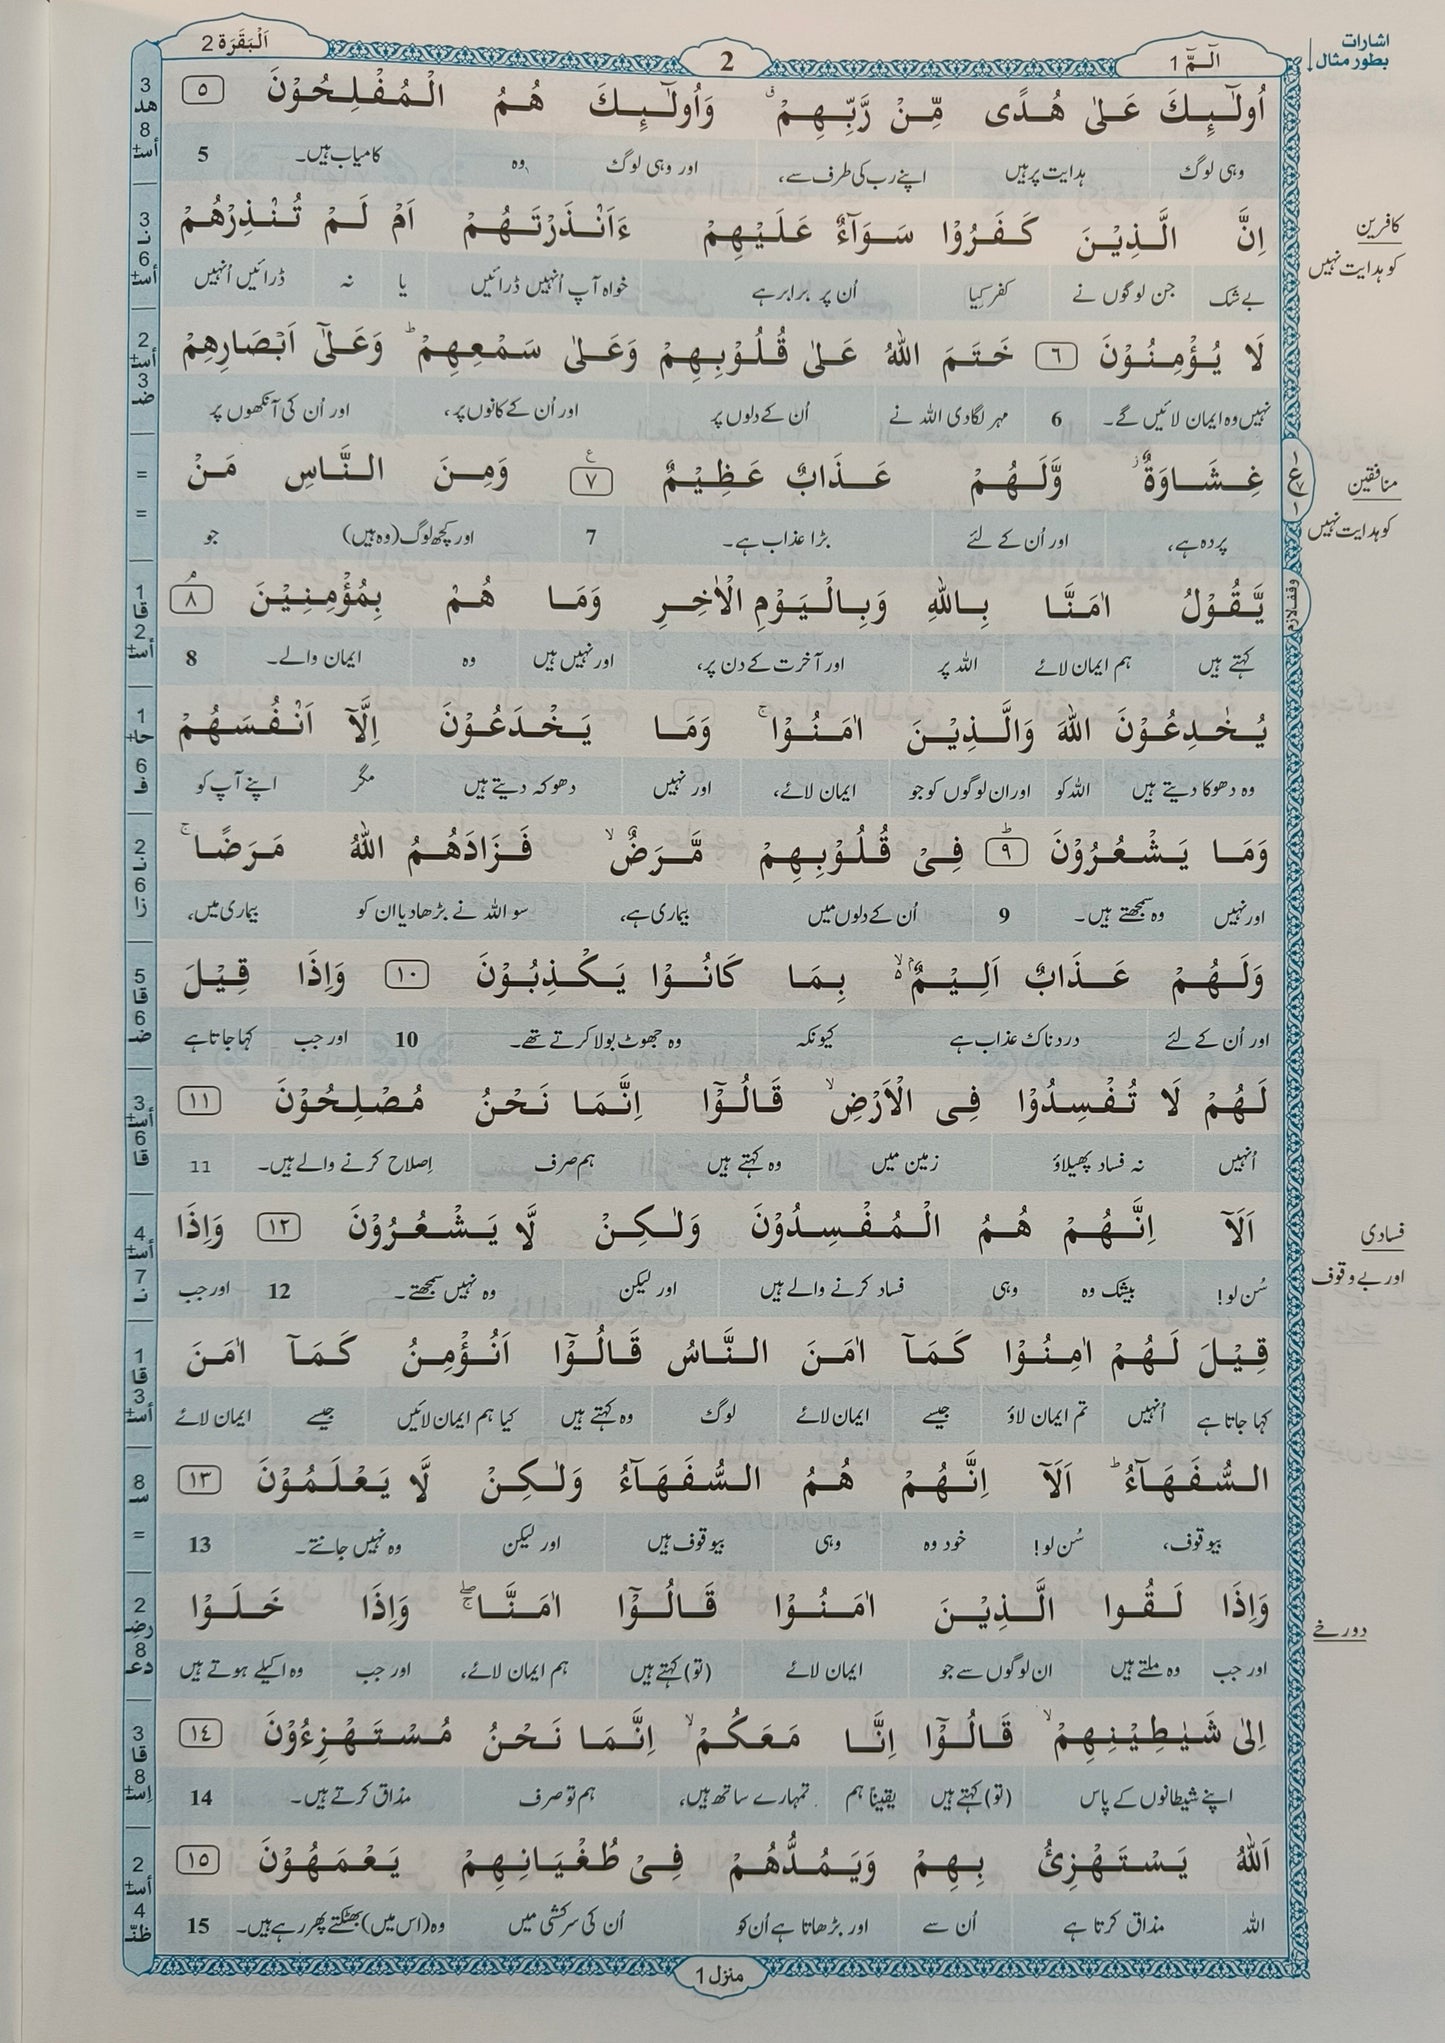 اشارات
بطور مثال
الٓـمّٓ 1
2
اَلْبَقَرَة 2
اُولٰٓئِكَ عَلٰى هُدًى مِّنْ رَّبِّهِمْ ۗ وَاُولٰٓئِكَ هُمُ الْمُفْلِحُوْنَ ٥
وہی لوگ ہدایت پر ہیں اپنے رب کی طرف سے، اور وہی لوگ وہ کامیاب ہیں۔ 5
اِنَّ الَّذِيْنَ كَفَرُوْا سَوَآءٌ عَلَيْهِمْ ءَاَنْذَرْتَهُمْ اَمْ لَمْ تُنْذِرْهُمْ
بے شک جن لوگوں نے کفر کیا اُن پر برابر ہے خواہ آپ اُنہیں ڈرائیں یا نہ ڈرائیں اُنہیں
کافرین
کو ہدایت نہیں
لَا يُؤْمِنُوْنَ ٦ خَتَمَ اللّٰهُ عَلٰى قُلُوْبِهِمْ وَعَلٰى سَمْعِهِمْ ؕ وَعَلٰٓى اَبْصَارِهِمْ
نہیں وہ ایمان لائیں گے۔ 6 مہر لگادی اللہ نے اُن کے دلوں پر اور اُن کے کانوں پر، اور اُن کی آنکھوں پر
غِشَاوَةٌ ۘ وَّلَهُمْ عَذَابٌ عَظِيْمٌ ٧ وَمِنَ النَّاسِ مَنْ
پردہ ہے، اور اُن کے لئے بڑا عذاب ہے۔ 7 اور کچھ لوگ (وہ ہیں) جو
منافقین
کو ہدایت نہیں
يَّقُوْلُ اٰمَنَّا بِاللّٰهِ وَبِالْيَوْمِ الْاٰخِرِ وَمَا هُمْ بِمُؤْمِنِيْنَ ۘ ٨
کہتے ہیں ہم ایمان لائے اللہ پر اور آخرت کے دن پر، اور نہیں ہیں وہ ایمان والے۔ 8
وقف لازم
يُخٰدِعُوْنَ اللّٰهَ وَالَّذِيْنَ اٰمَنُوْا ۚ وَمَا يَخْدَعُوْنَ اِلَّاۤ اَنْفُسَهُمْ
وہ دھوکا دیتے ہیں اللہ کو اور ان لوگوں کو جو ایمان لائے، اور نہیں دھوکہ دیتے ہیں مگر اپنے آپ کو
وَمَا يَشْعُرُوْنَ ؕ ٩ فِىْ قُلُوْبِهِمْ مَّرَضٌ ۙ فَزَادَهُمُ اللّٰهُ مَرَضًا ۚ
اور نہیں وہ سمجھتے ہیں۔ 9 اُن کے دلوں میں بیماری ہے، سو اللہ نے بڑھا دیا ان کو بیماری میں،
وَلَهُمْ عَذَابٌ اَلِيْمٌ ۢ ۙ بِمَا كَانُوْا يَكْذِبُوْنَ ١٠ وَاِذَا قِيْلَ
اور اُن کے لئے دردناک عذاب ہے کیونکہ وہ جھوٹ بولا کرتے تھے۔ 10 اور جب کہا جاتا ہے
لَهُمْ لَا تُفْسِدُوْا فِى الْاَرْضِ ۙ قَالُوْٓا اِنَّمَا نَحْنُ مُصْلِحُوْنَ ١١
اُنہیں نہ فساد پھیلاؤ زمین میں وہ کہتے ہیں ہم صرف اِصلاح کرنے والے ہیں۔ 11
اَلَاۤ اِنَّهُمْ هُمُ الْمُفْسِدُوْنَ وَلٰكِنْ لَّا يَشْعُرُوْنَ ١٢ وَاِذَا
سُن لو! بیشک وہ وہی فساد کرنے والے ہیں اور لیکن وہ نہیں سمجھتے۔ 12 اور جب
فسادی
اور بے وقوف
قِيْلَ لَهُمْ اٰمِنُوْا كَمَاۤ اٰمَنَ النَّاسُ قَالُوْٓا اَنُؤْمِنُ كَمَاۤ اٰمَنَ
کہا جاتا ہے اُنہیں تم ایمان لاؤ جیسے ایمان لائے لوگ وہ کہتے ہیں کیا ہم ایمان لائیں جیسے ایمان لائے
السُّفَهَآءُ ؕ اَلَاۤ اِنَّهُمْ هُمُ السُّفَهَآءُ وَلٰكِنْ لَّا يَعْلَمُوْنَ ١٣
بیوقوف، سُن لو! خود وہ وہی بیوقوف ہیں اور لیکن وہ نہیں جانتے۔ 13
وَاِذَا لَقُوا الَّذِيْنَ اٰمَنُوْا قَالُوْٓا اٰمَنَّا ۖۚ وَاِذَا خَلَوْا
اور جب وہ ملتے ہیں ان لوگوں سے جو ایمان لائے (تو) کہتے ہیں ہم ایمان لائے، اور جب وہ اکیلے ہوتے ہیں
دو رخے
اِلٰى شَيٰطِيْنِهِمْ ۙ قَالُوْٓا اِنَّا مَعَكُمْ ۙ اِنَّمَا نَحْنُ مُسْتَهْزِءُوْنَ ١٤
اپنے شیطانوں کے پاس (تو) کہتے ہیں یقیناً ہم تمہارے ساتھ ہیں، ہم تو صرف مذاق کرتے ہیں۔ 14
اَللّٰهُ يَسْتَهْزِئُ بِهِمْ وَيَمُدُّهُمْ فِىْ طُغْيَانِهِمْ يَعْمَهُوْنَ ١٥
اللہ مذاق کرتا ہے اُن سے اور بڑھاتا ہے اُن کو اُن کی سرکشی میں وہ (اس میں) بھٹکتے پھر رہے ہیں۔ 15
منزل 1